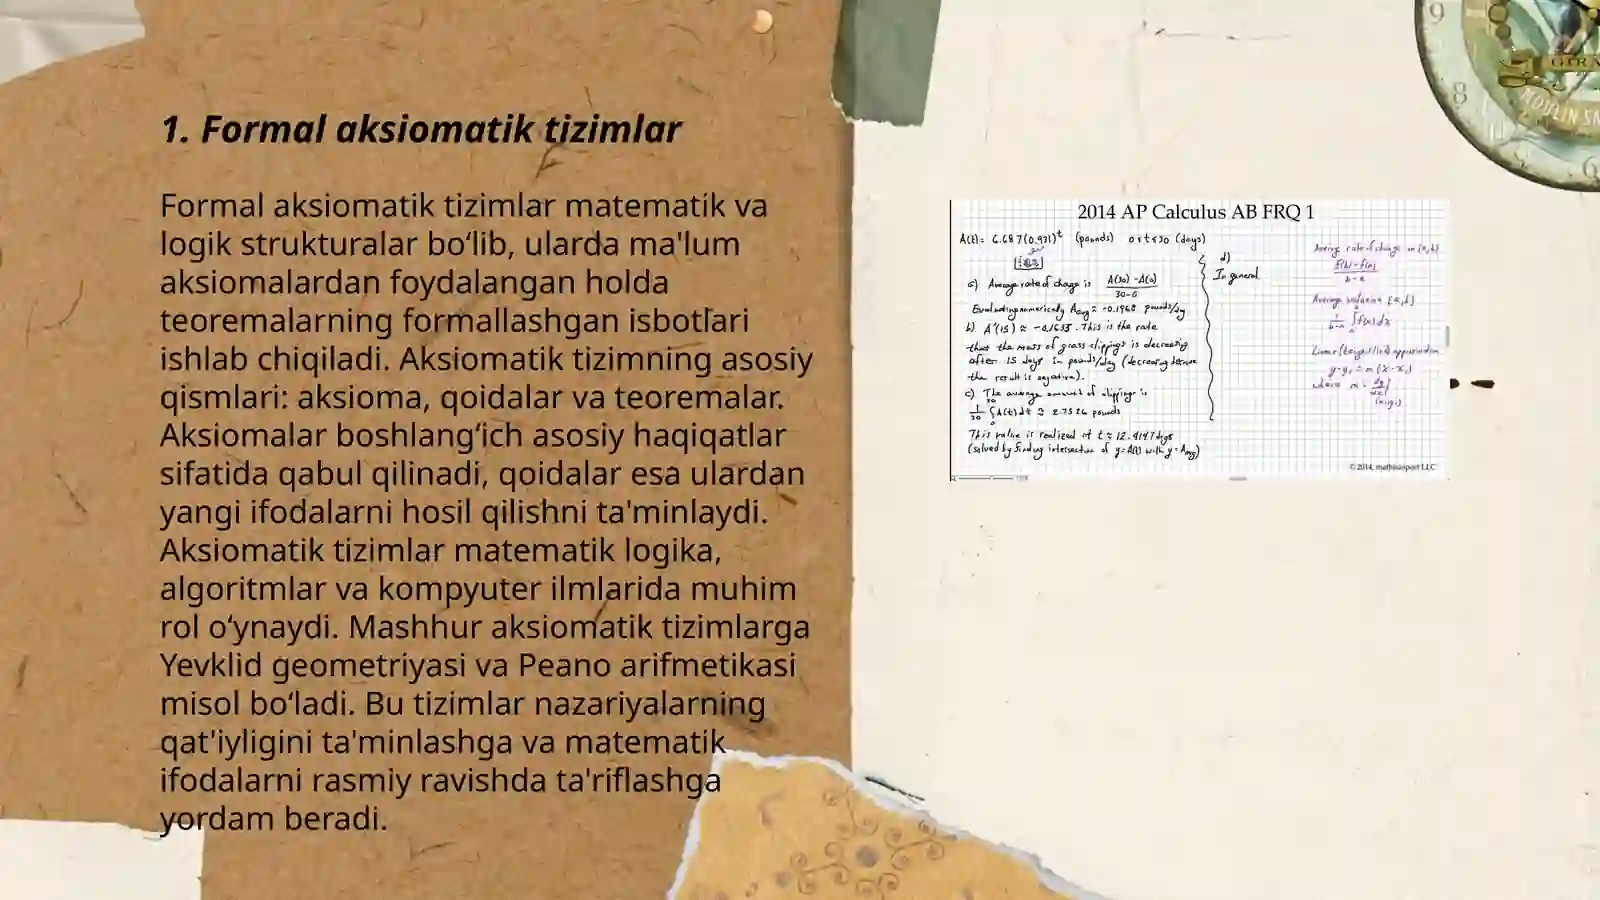 1. Formal aksiomatik tizimlar
Formal aksiomatik tizimlar matematik va
logik strukturalar bo‘lib, ularda ma'lum
aksiomalardan foydalangan holda
teoremalarning formallashgan isbotlari
ishlab chiqiladi. Aksiomatik tizimning asosiy
qismlari: aksioma, qoidalar va teoremalar.
Aksiomalar boshlang‘ich asosiy haqiqatlar
sifatida qabul qilinadi, qoidalar esa ulardan
yangi ifodalarni hosil qilishni ta'minlaydi.
Aksiomatik tizimlar matematik logika,
algoritmlar va kompyuter ilmlarida muhim
rol o‘ynaydi. Mashhur aksiomatik tizimlarga
Yevklid geometriyasi va Peano arifmetikasi
misol bo‘ladi. Bu tizimlar nazariyalarning
qat'iyligini ta'minlashga va matematik
ifodalarni rasmiy ravishda ta'riflashga
yordam beradi.
2014 AP Calculus AB FRQ 1
A(t)= 6.687(0.931)^t (pounds) 0≤t≤30 (days)
a) Average rate of change is A(30)-A(0)
30-0
Evaluating numerically Aavg ≈ -0.1968 pounds/day
b) A'(15) ≈ -0.1635. This is the rate
that the mass of grass clippings is decreasing
after 15 days in pounds/day (decreasing because
the result is negative).
c) The average amount of clippings is
1/30 ∫A(t)dt ≈ 2.7526 pounds
This value is realized at t≈12.4147 days
(solved by finding intersection of y=A(t) with y=Aavg)
d)
In general
Average rate of change on [a,b]
f(b)-f(a)
b-a
Average value on [a,b]
1/b-a ∫f(x)dx
Linear (tangent line) approximation
y-y₁ = m(x-x₁)
where m = dy/dx|
(x₁,y₁)
© 2014, mathissport LLC
9
8
6
MOULIN SN